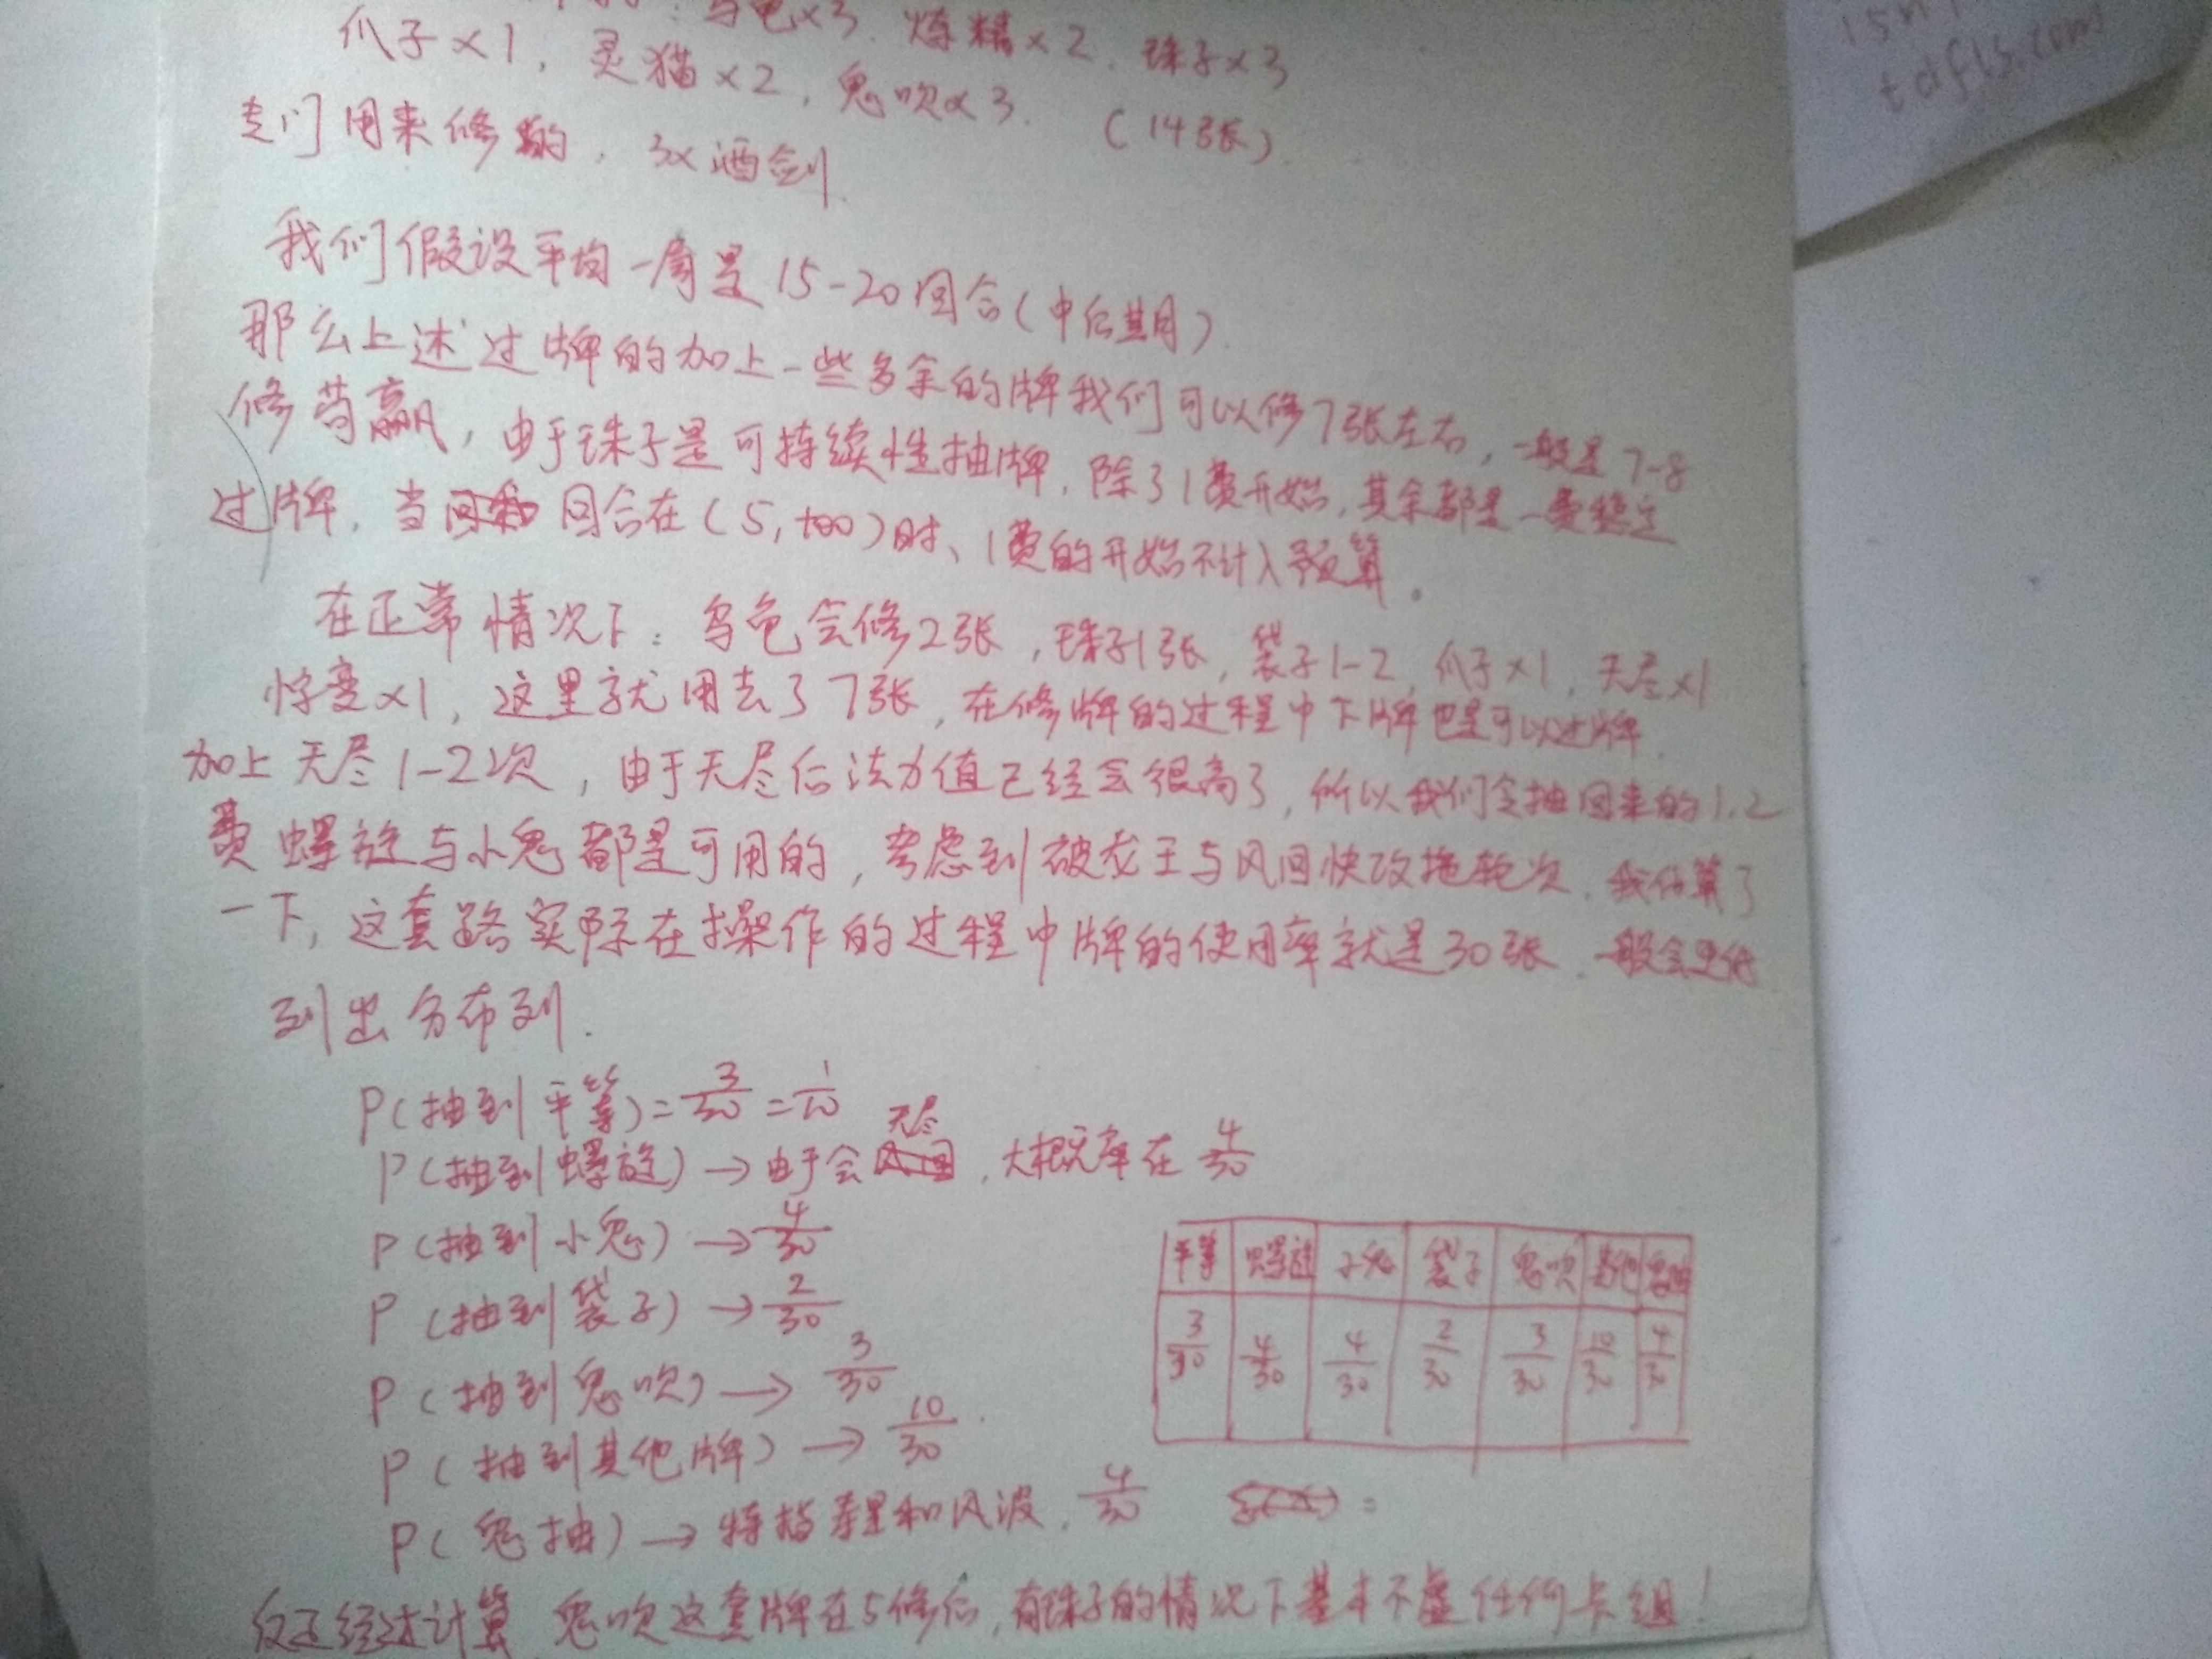 ：乌龟×3. 炼精×2. 珠子×3
爪子×1, 灵猫×2, 鬼吹×3. (14张).
专门用来修的, 3×酒剑.
我们假设平均一局是15-20回合(中后期).
那么上述过牌的加上一些多余的牌我们可以修7张左右, 一般是7-8
修苟赢, 由于珠子是可持续性抽牌, 除了1费开始, 其余都是一费稳定
过牌. 当回合在(5,+∞)时、1费的开始不计入预算。
在正常情况下：乌龟会修2张, 珠子1张, 袋子1-2, 爪子×1, 无尽×1
惊变×1, 这里就用去了7张, 在修牌的过程中下牌也是可以过牌.
加上无尽1-2次, 由于无尽后法力值已经会很高了, 所以我们会抽回来的1.2
费螺旋与小鬼都是可用的, 考虑到被龙王与风回快攻拖轮次, 我估算了
一下, 这套路实际在操作的过程中牌的使用率就是30张. 一般会更低
列出分布列.
P(抽到平等)=3/30=1/10
P(抽到螺旋)→由于会无尽, 大概率在4/30
P(抽到小鬼)→4/30
P(抽到袋子)→2/30
P(抽到鬼吹)→3/30
P(抽到其他牌)→10/30.
P(鬼抽)→特指 和风波. 4/30
平等 螺旋 小鬼 袋子 鬼吹 其他 鬼抽
3/30 4/30 4/30 2/30 3/30 10/30 4/30
=
反正经过计算, 鬼吹这套牌在5修后, 有珠子的情况下基本不虚任何卡组!
15n1
tdfls.com